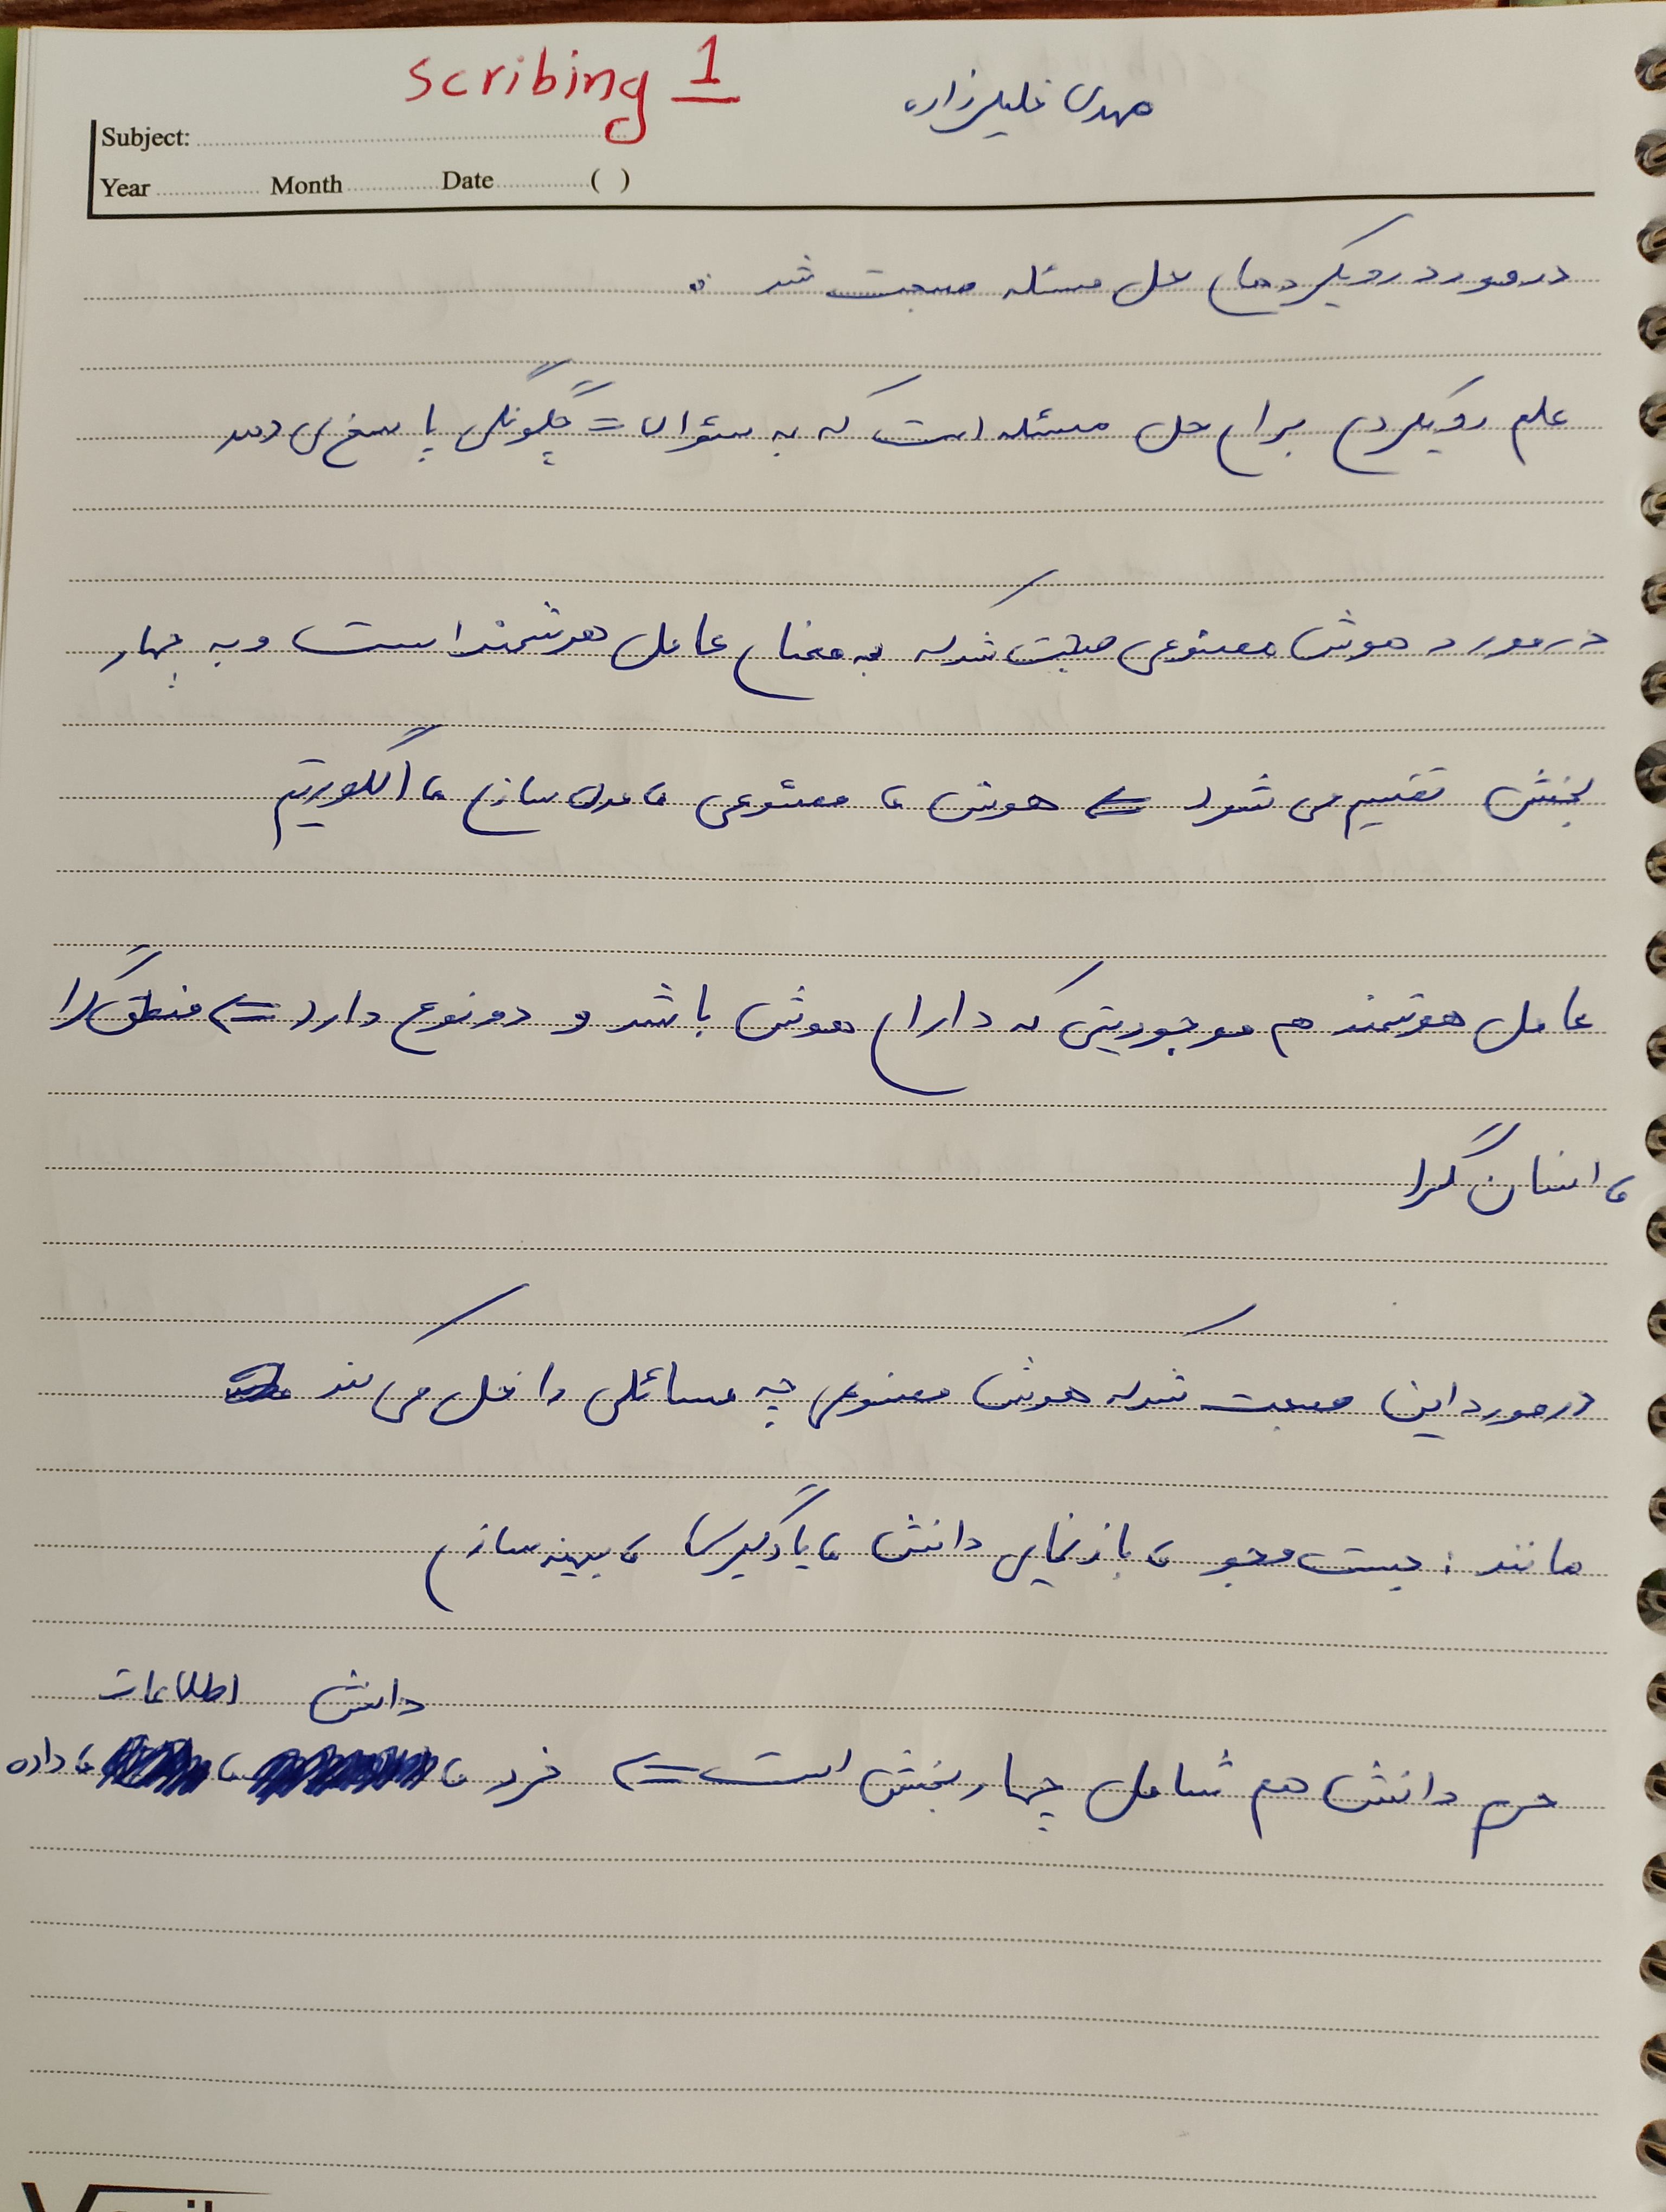 Scribing 1
مهدی خلیلزاده
Subject:
Year Month Date ( )
در مورد رویکردهای حل مسئله صبحت شد .
علم رویکردی برای حل مسئله است که به سئوال = چگونگی پاسخ می دهد
در مورد هوش مصنوعی صبحت شد که به معنای عامل هوشمند است و به چهار
بخش تقسیم می شود <= هوش ، مصنوعی ، مدل سازی ، الگوریتم
عامل هوشمند هم موجودیتی که دارای هوش باشد و دو نوع دارد <= منطق گرا
، انسان گرا
در مورد این صبحت شد که هوش مصنوعی چه مسائلی را حل می کند
مانند : جست و جو ، بازنمایی دانش ، یادگیری ، بهینه سازی
دانش اطلاعات
هرم دانش هم شامل چهار بخش است <= خرد ، ، ، داده